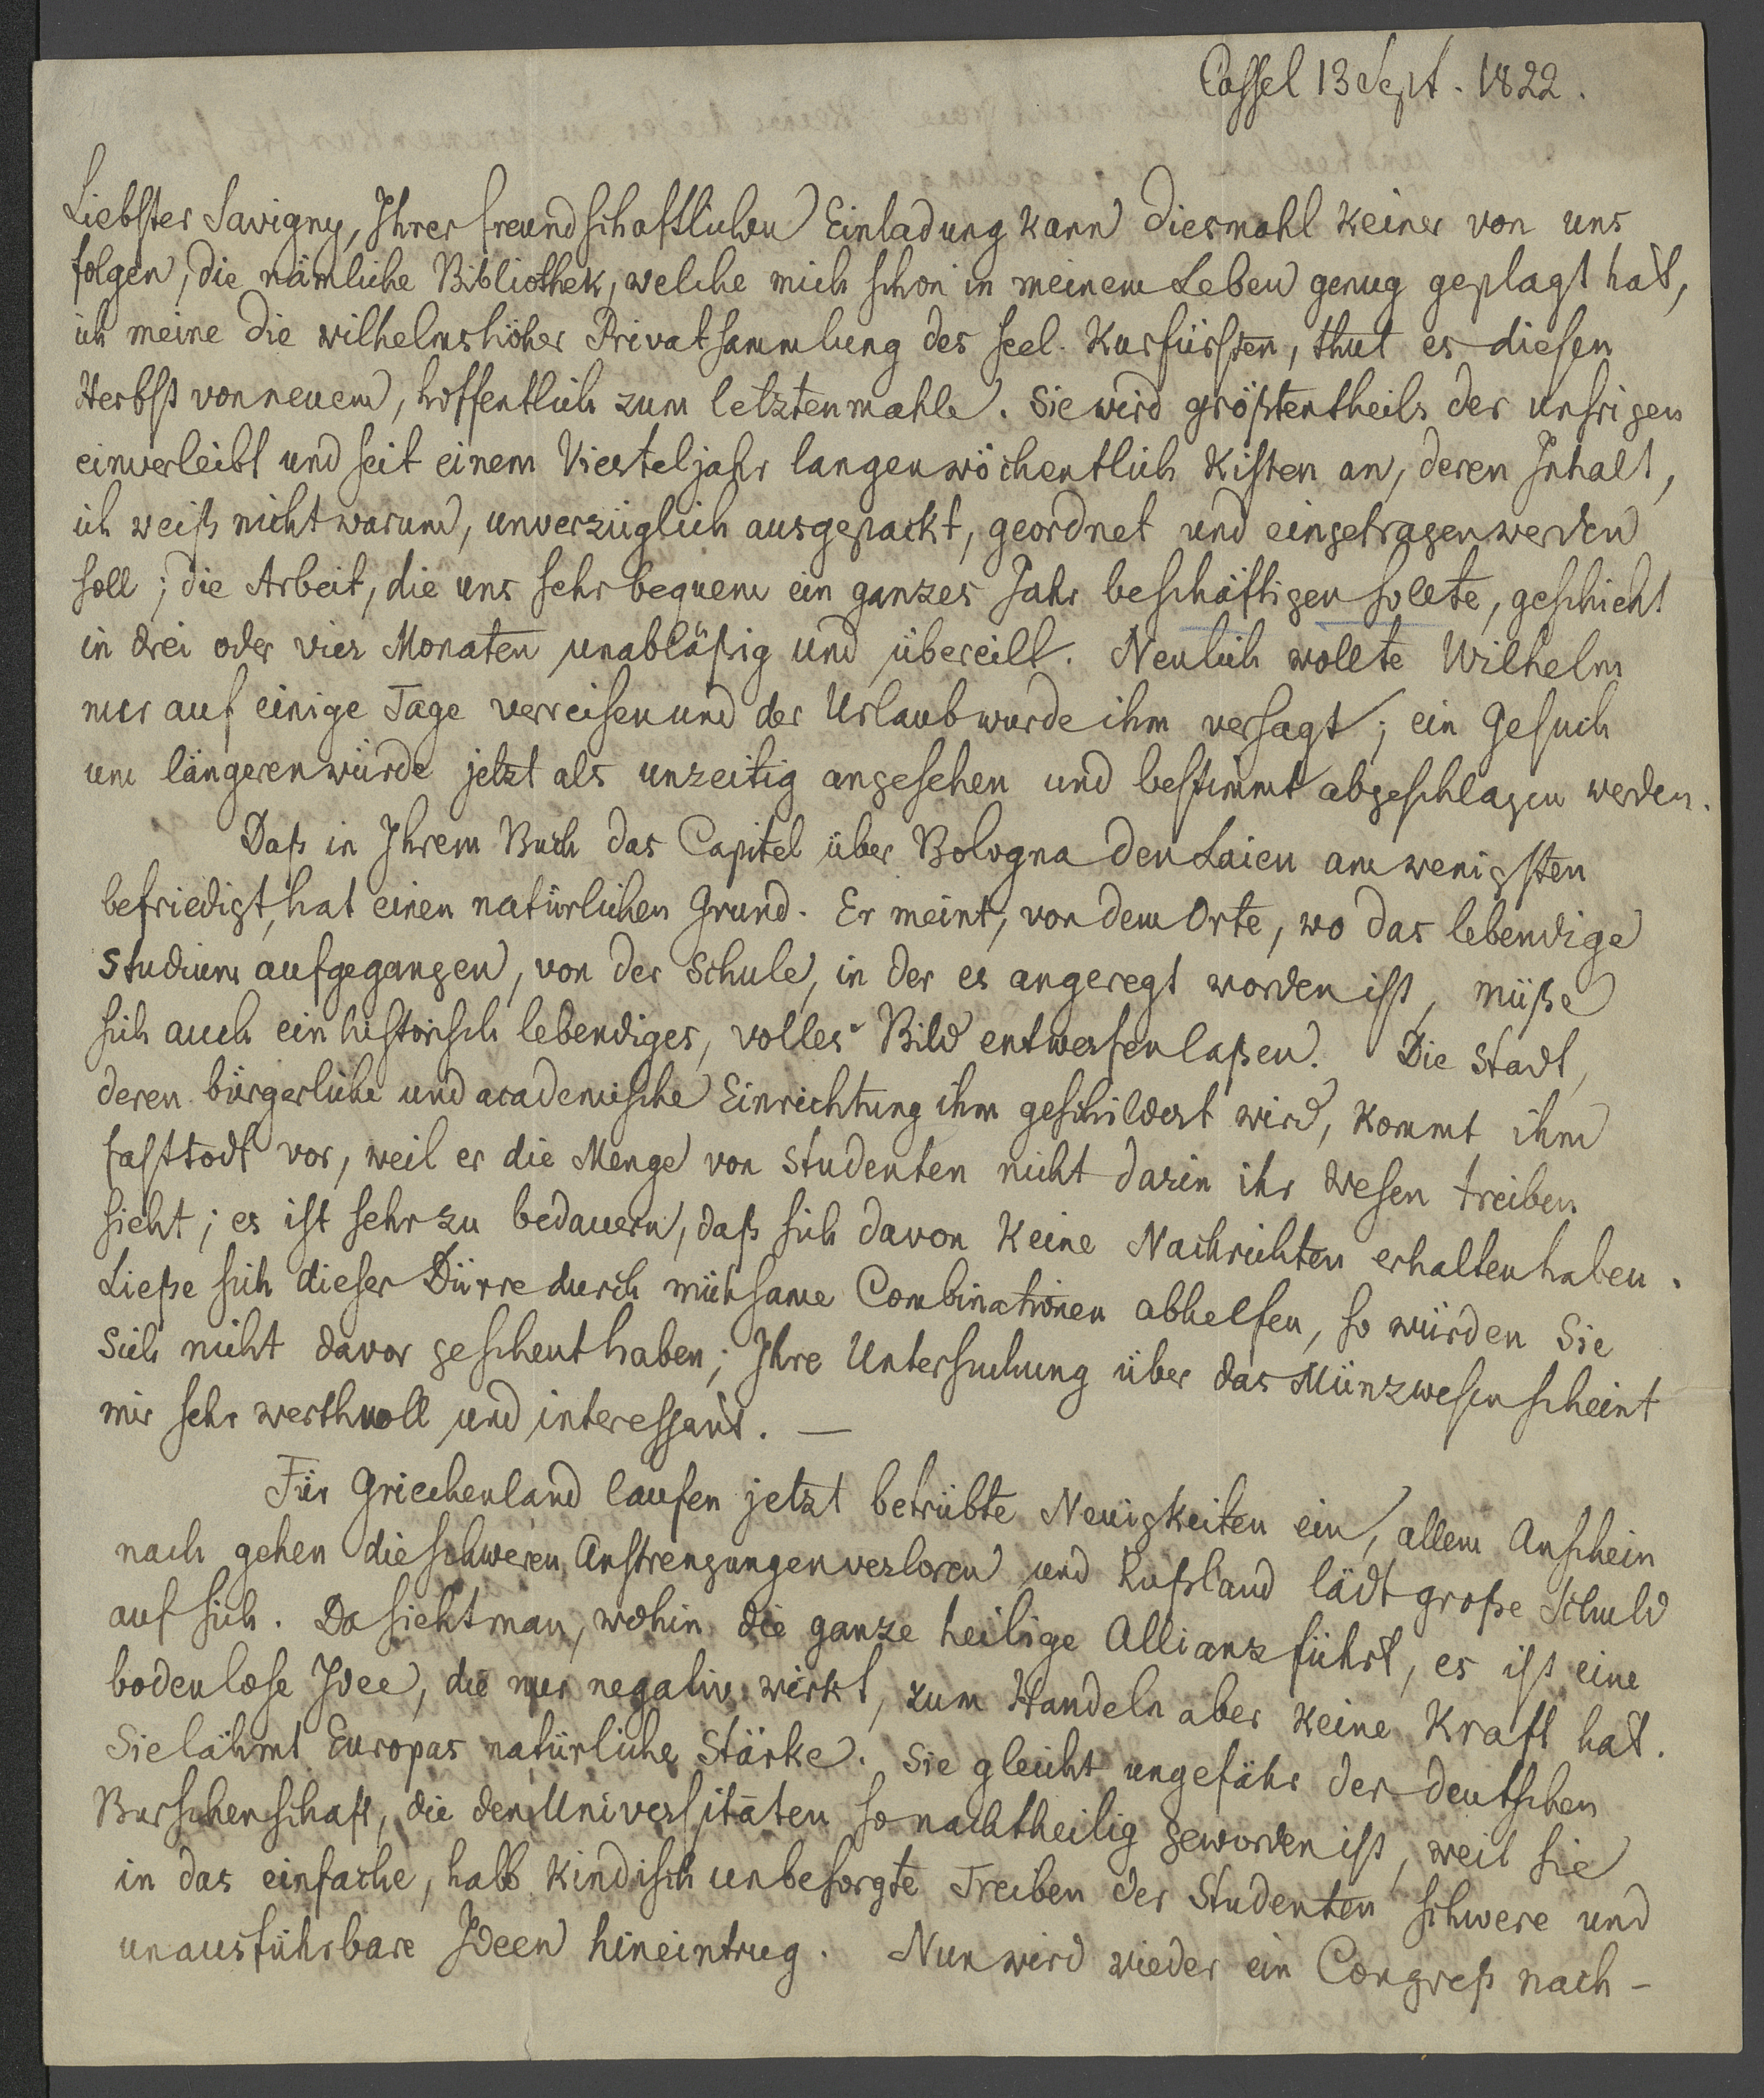 Cassel 13 Sept. 1822.
Liebster Savigny, Ihrer freundschaftlichen Einladung kann diesmahl keiner von uns
folgen, die nämliche Bibliothek, welche mich schon in meinem Leben genug geplagt hat,
ich meine die wilhelmshöher Privatsammlung des seel. Kurfürsten, thut es diesen
Herbst von neuem, hoffentlich zum letztenmahle. Sie wird größtentheils der unsrigen
einverleibt und seit einem Vierteljahr langen wöchentlich Kisten an, deren Inhalt,
ich weiß nicht warum, unverzüglich ausgepackt, geordnet und eingetragen werden
soll; die Arbeit, die uns sehr bequem ein ganzes Jahr beschäftigen sollte, geschieht
in drei oder vier Monaten unabläßig und übereilt. Neulich wollte Wilhelm
nur auf einige Tage verreisen und der Urlaub wurde ihm versagt; ein Gesuch
um längeren würde jetzt als unzeitig angesehen und bestimmt abgeschlagen werden.
Daß in Ihrem Buch das Capitel über Bologna den Laien am wenigsten
befriedigt, hat einen natürlichen Grund. Er meint, von dem Orte, wo das lebendige
Studium aufgegangen, von der Schule, in der es angeregt worden ist, müße
sich auch ein historisch lebendiges, volles Bild entwerfen laßen. Die Stadt,
deren bürgerliche und academische Einrichtung ihm geschildert wird, kommt ihm
fast todt vor, weil er die Menge von Studenten nicht darin ihr Wesen treiben
sieht; es ist sehr zu bedauern, daß sich davon keine Nachrichten erhalten haben.
Ließe sich dieser Dürre durch mühsame Combinationen abhelfen, so würden Sie
Sich nicht davor gescheut haben; Ihre Untersuchung über das Münzwesen scheint
mir sehr werthvoll und interessant. —
Für Griechenland laufen jetzt betrübte Neuigkeiten ein, allem Anschein
nach gehen die schweren Anstrengungen verloren und Rußland lädt große Schuld
auf sich. Da sieht man, wohin die ganze heilige Allianz führt, es ist eine
bodenlose Idee, die nur negativ wirkt, zum Handeln aber keine Kraft hat.
Sie lähmt Europas natürliche Stärke. Sie gleicht ungefähr der deutschen
Burschenschaft, die den Universitäten so nachtheilig geworden ist, weil sie
in das einfache, halb kindisch unbesorgte Treiben der Studenten schwere und
unausführbare Ideen hineintrug. Nun wird wieder ein Congreß nach-